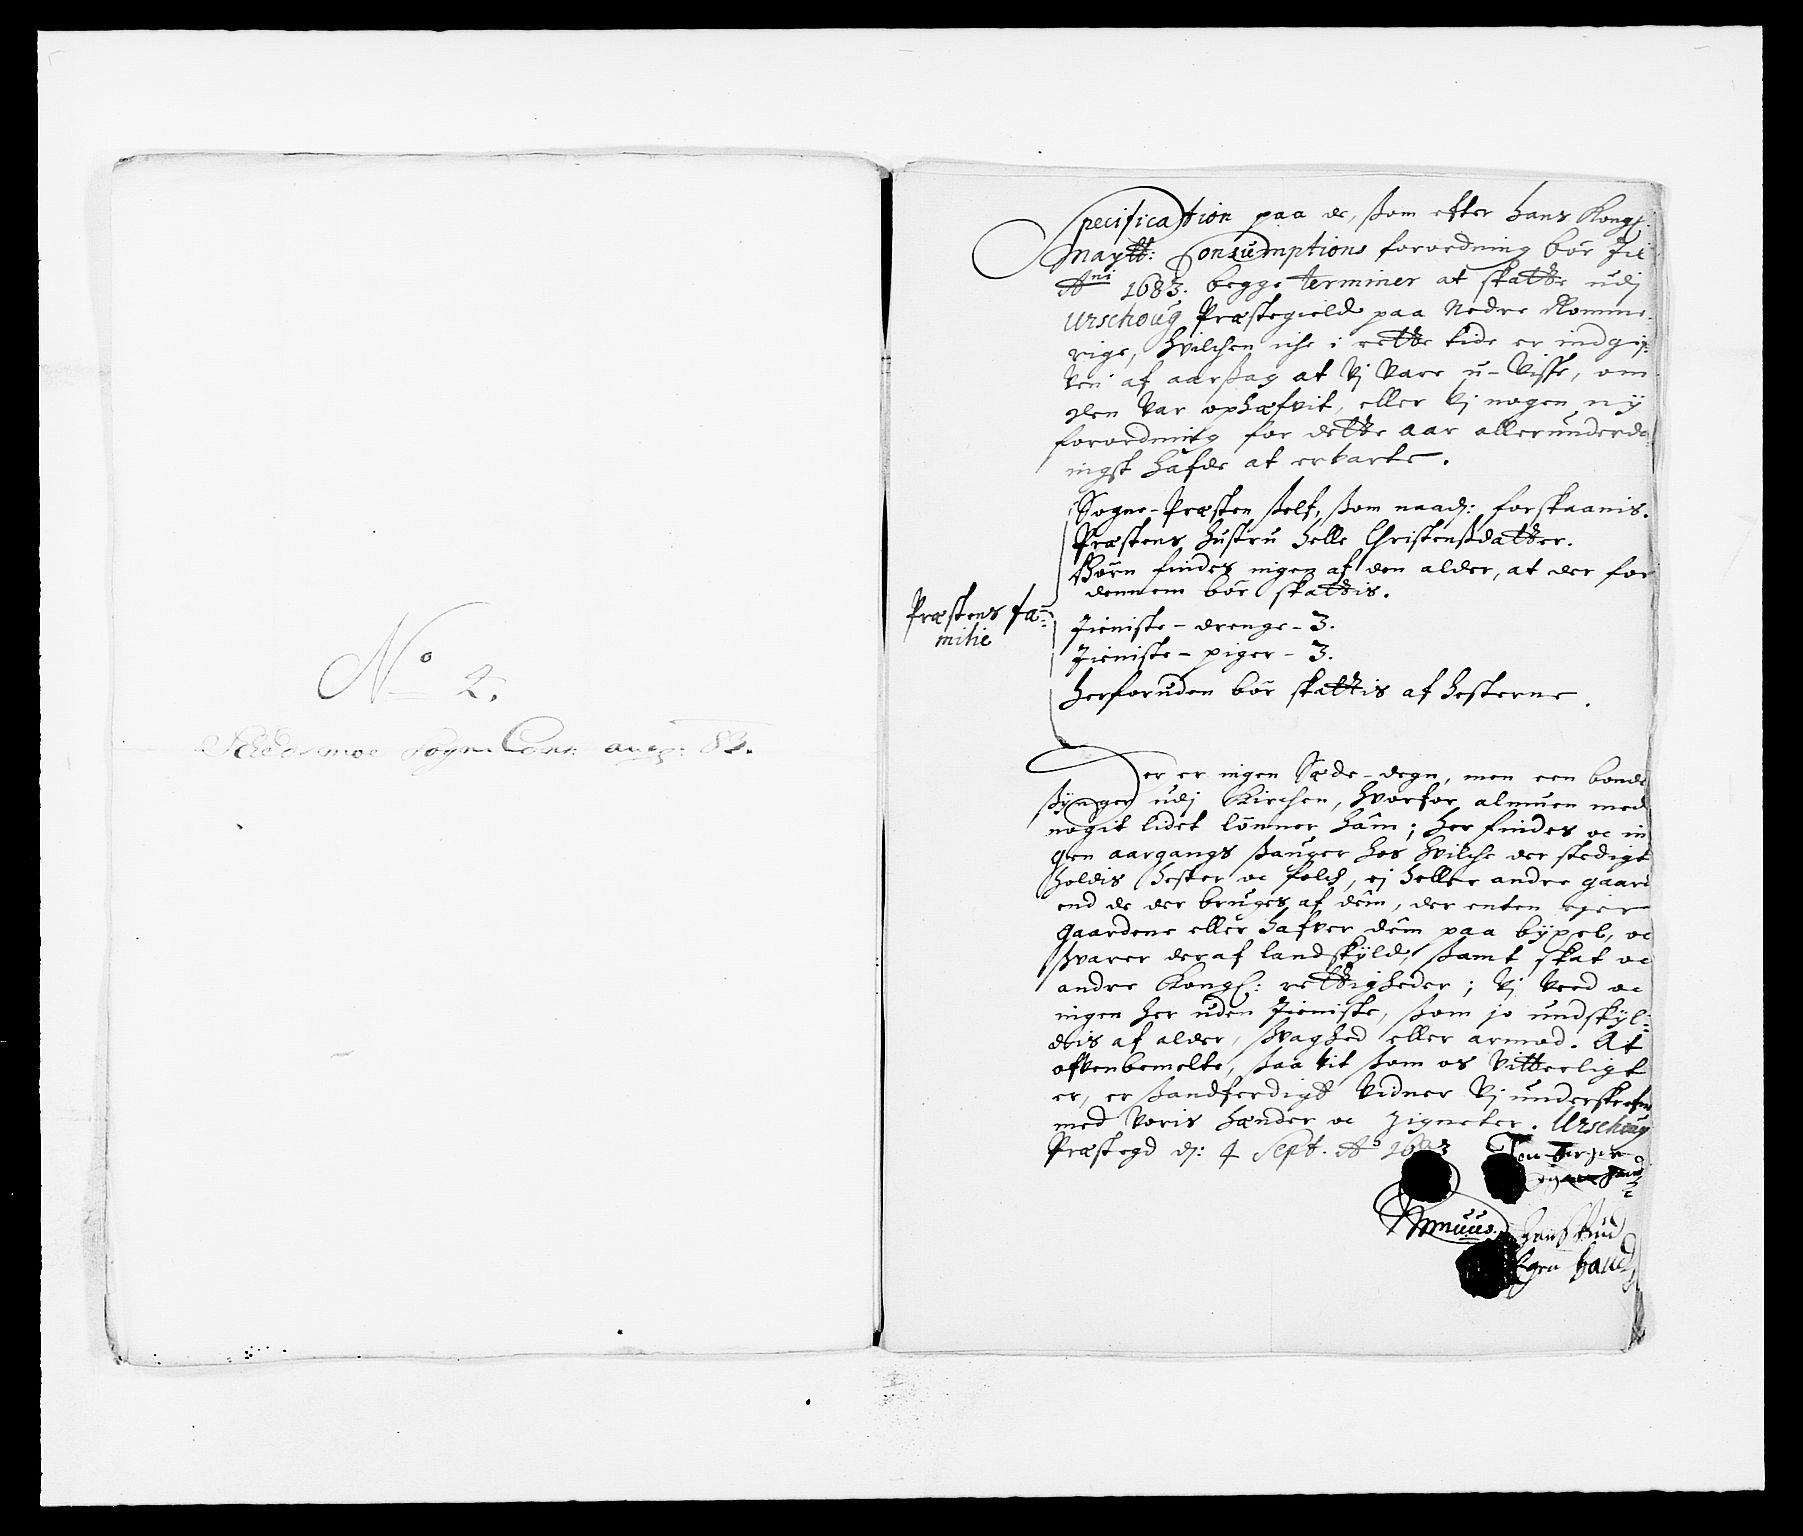 No 2.
Skedsmoe Sogns Cons: ang: 83.
Specification paa de, som efter hans Kongl:
Maytt: Consumptions forordning bör til
Ani 1683. begge terminer at skatte udj
Urschoug Præstegield paa Nedre Romme-
rige, hvilchen iche i rette tide er indgif-
ven af aarsag at vj vare u-visse, om
den var ophæfvit, eller vj nogen ny
forordning for dette aar allerunderda-
nigst hafde at ervarte.
Sogne-Præsten self, som naad: forskaanis.
Præstens hustru Helle Christensdatter.
Börn findes ingen af den alder, at der for
dennem bör skattis.
Præstens Fa-
milie
Tieniste-drenge-3.
Tieniste-piger-3.
Herforuden bör skattis af hesterne.
Der er ingen Sæde-degn, men een bonde
synger udj Kirchen, hvorfor almuen med
nogit lidet lönner ham; her findes oc in
gen aargangs sauger hos hvilche der stedigt
holdis hester oc folch, ej heller andre gaard
end de der bruges af dem, der enten ejer
gaardene eller hafver dem paa bÿxel, oc
svarer deraf landskÿld, samt skat oc
andre Kongl: rettigheder; vj veed oc
ingen her uden Tieniste, som jo undskyl-
dis af alder, svaghed eller armod. At
ofvenbemelte, saa vit som os vitterligt
er, er sandferdigt vidner vj underskrefne
med voris hænder oc zigneter. Urschoug
Præstegd d: 4 Sept. Ao 1683
egen hand